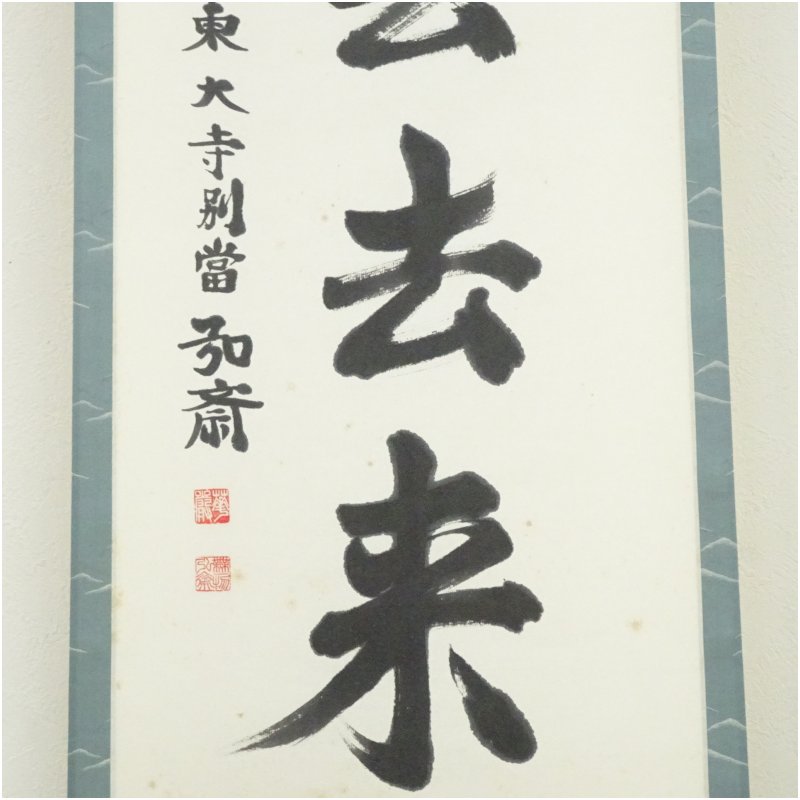 去来
東大寺別當 弘斎
華嚴